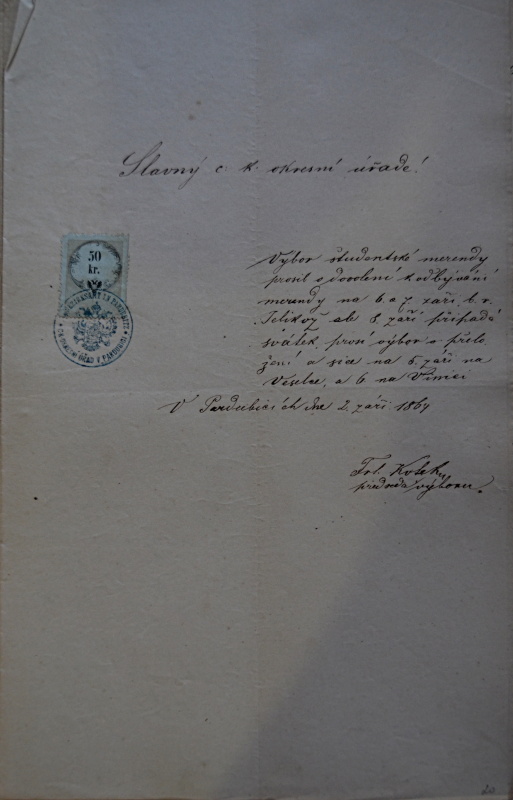 Slavný c. k. okresní úřade!
50
kr.
Výbor studentské merendy
prosil o dovolení k odbývání
merendy na 6 a 7. září. b. r.
Jelikož ale 8. září připadá
svátek, prosí výbor o přelo
žení a sice na 5. září na
Veselce, a 6 na Vinici
V Pardubicích dne 2. září 1864
předseda výboru.